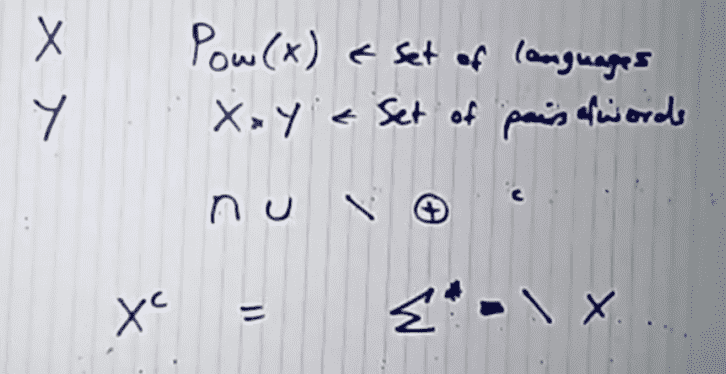 X Pow(X) ← Set of languages
Y X × Y ← Set of pairs of words
∩ ∪ \ ⊕ c
Xᶜ = Σ* \ X